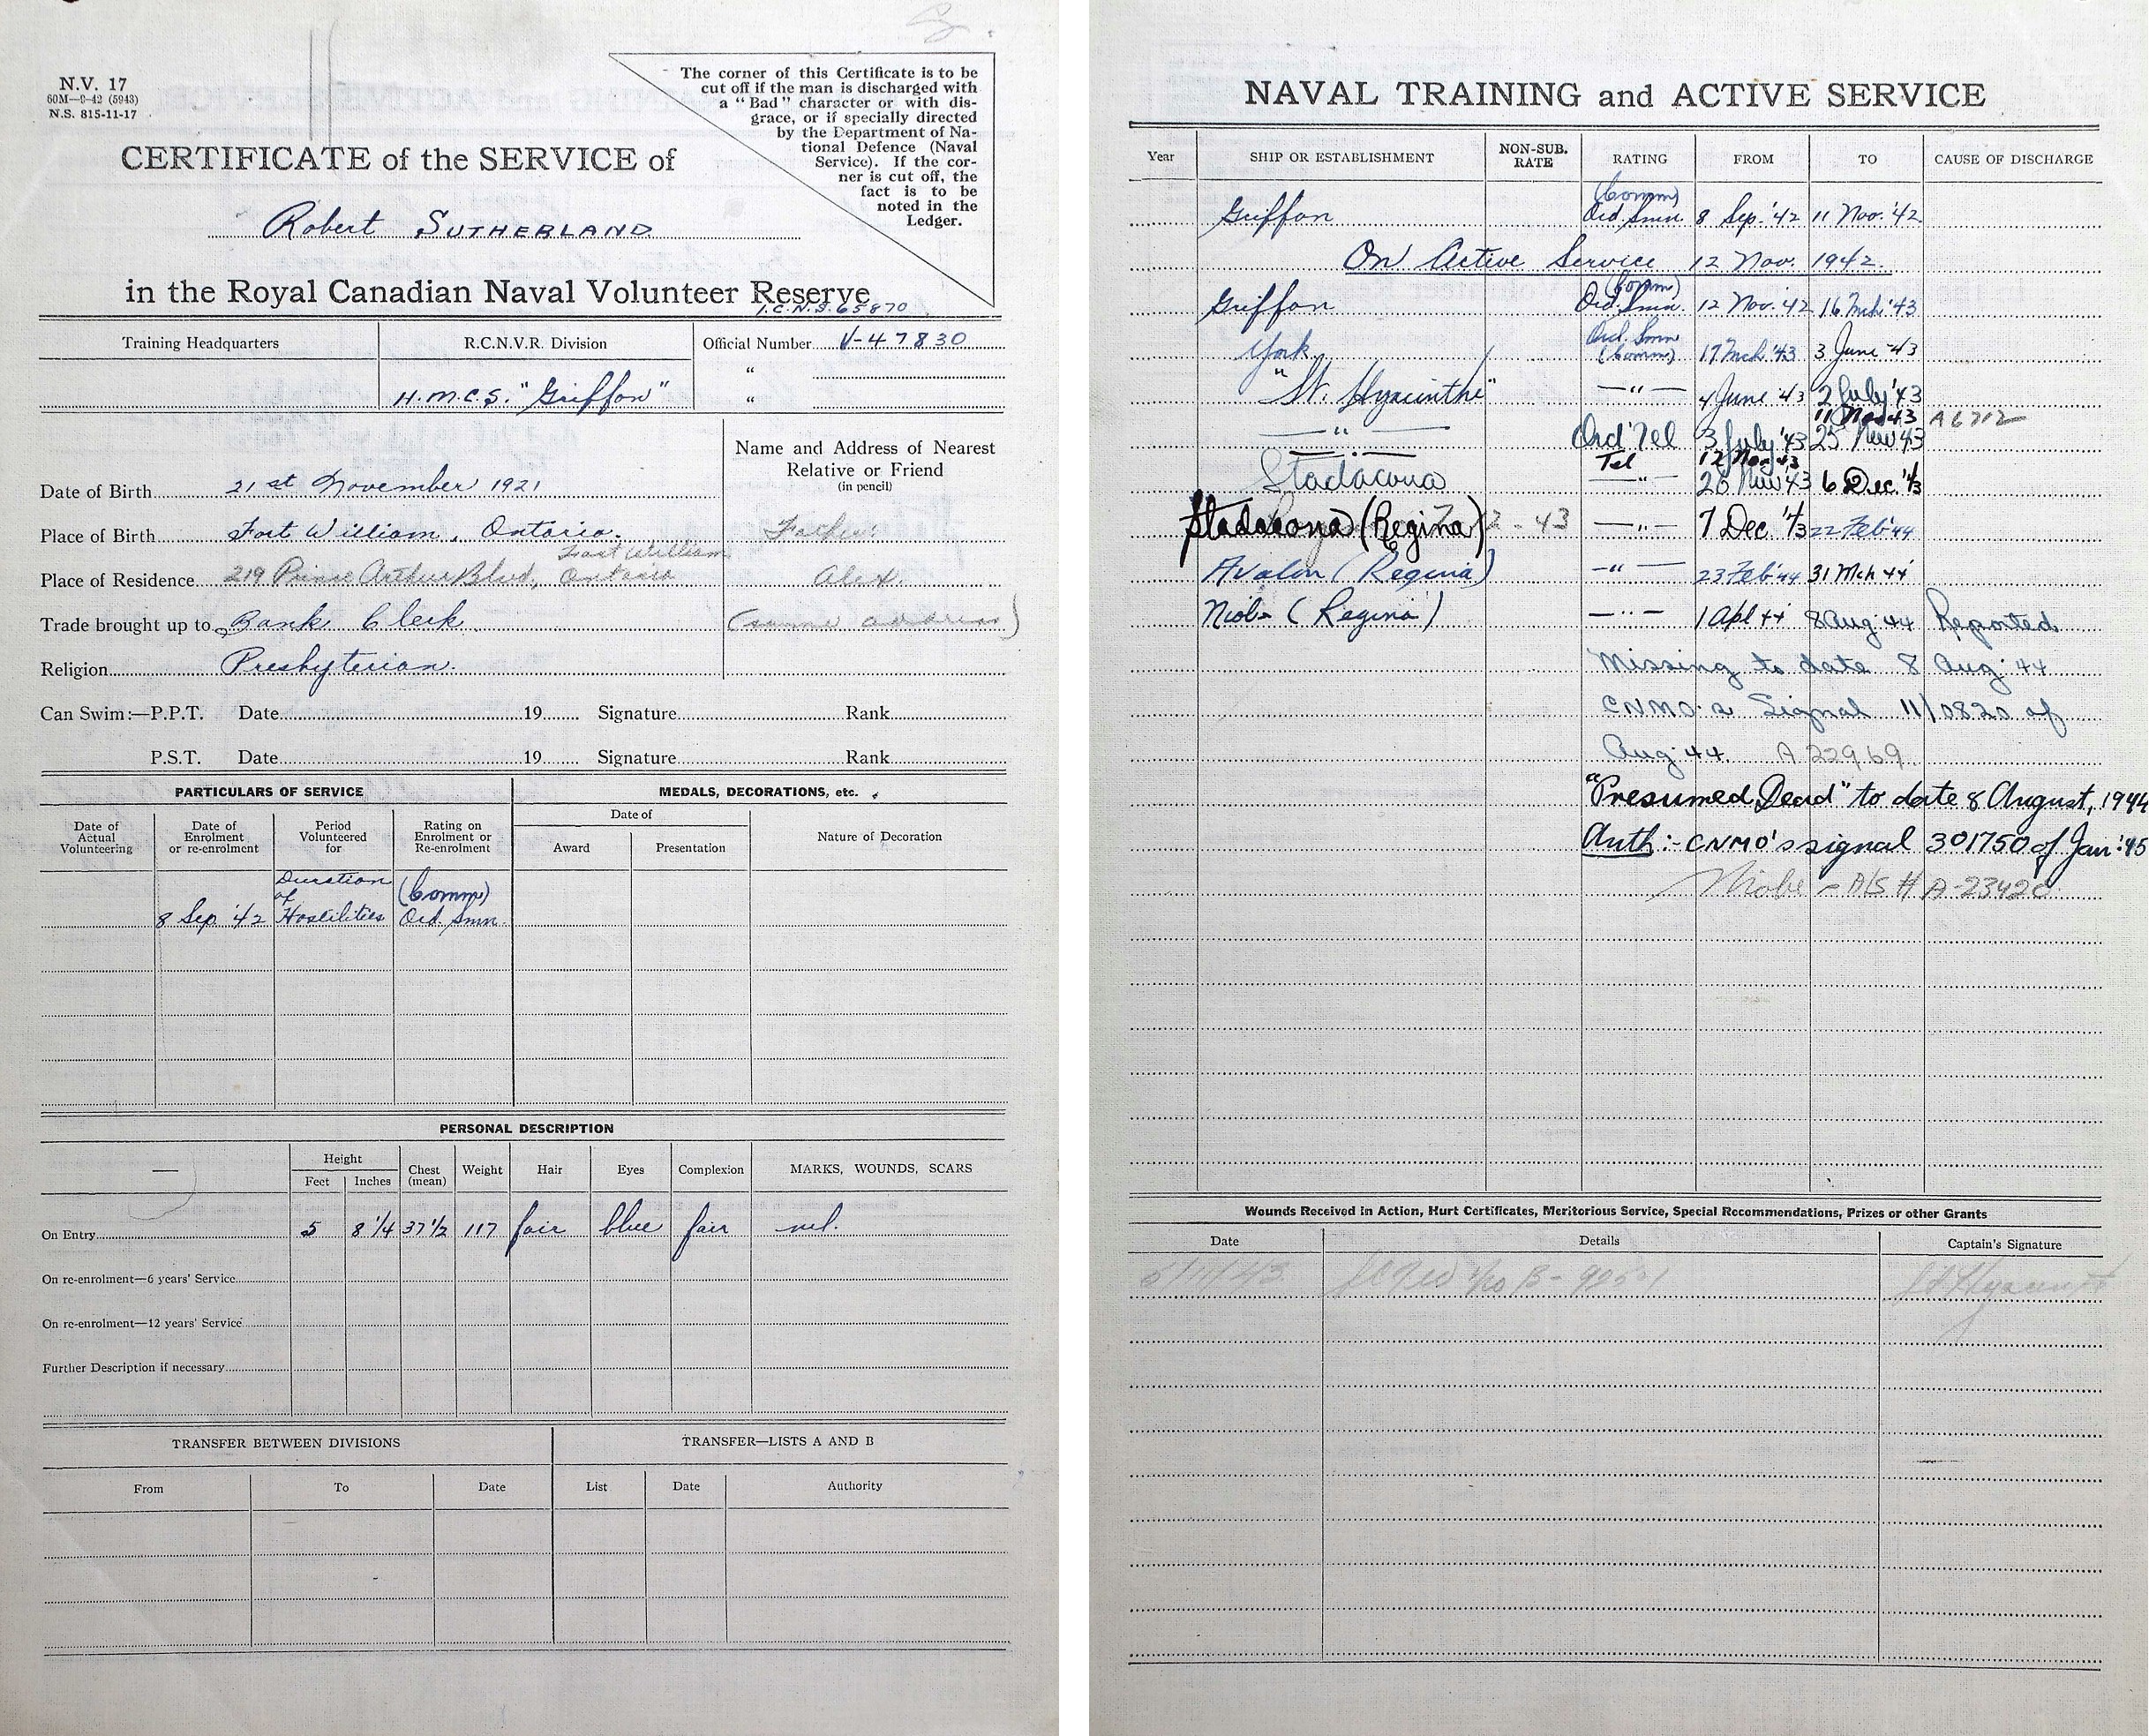 N.V. 17
60M—9-42 (5943)
N.S. 815-11-17
The corner of this Certificate is to be
cut off if the man is discharged with
a "Bad" character or with dis-
grace, or if specially directed
by the Department of Na-
tional Defence (Naval
Service). If the cor-
ner is cut off, the
fact is to be
noted in the
Ledger.
CERTIFICATE of the SERVICE of
Robert SUTHERLAND
in the Royal Canadian Naval Volunteer Reserve
I.C.N.S. 65870
Training Headquarters R.C.N.V.R. Division Official Number V-47830
"
H.M.C.S. "Griffon" "
Name and Address of Nearest
Relative or Friend
(in pencil)
Date of Birth 21st November 1921
Place of Birth Fort William, Ontario. Father:
Place of Residence 219 Prince Arthur Blvd, Fort William Ontario Alex.
Trade brought up to Bank Clerk (same address)
Religion Presbyterian.
Can Swim:—P.P.T. Date 19 Signature Rank
P.S.T. Date 19 Signature Rank
PARTICULARS OF SERVICE MEDALS, DECORATIONS, etc.
Date of Actual Volunteering Date of Enrolment or re-enrolment Period Volunteered for Rating on Enrolment or Re-enrolment Date of Award Presentation Nature of Decoration
8 Sep '42 Duration of Hostilities (Comm) Ord. Smn.
PERSONAL DESCRIPTION
— Height Feet Inches Chest (mean) Weight Hair Eyes Complexion MARKS, WOUNDS, SCARS
On Entry 5 8 1/4 37 1/2 117 fair blue fair nil.
On re-enrolment—6 years' Service
On re-enrolment—12 years' Service
Further Description if necessary
TRANSFER BETWEEN DIVISIONS TRANSFER—LISTS A AND B
From To Date List Date Authority
NAVAL TRAINING and ACTIVE SERVICE
Year SHIP OR ESTABLISHMENT NON-SUB. RATE RATING FROM TO CAUSE OF DISCHARGE
Griffon (Comm) Ord. Smn. 8 Sep. '42 11 Nov. '42
On Active Service 12 Nov. 1942.
Griffon (Comm) Ord. Smn. 12 Nov. '42 16 Mch '43
York Ord. Smn (Comm) 17 Mch. '43 3 June '43
"St. Hyacinthe" —"— 4 June '43 2 July '43
—"— Ord Tel 3 July '43 25 Nov '43
11 Nov 43 A6712
—"— Tel 12 Nov 43
Stadacona —"— 26 Nov 43 6 Dec. '43
Stadacona (Regina) —"— 7 Dec '43 22 Feb '44
Avalon (Regina) —"— 23 Feb '44 31 Mch 44
Niobe (Regina) —"— 1 Apl 44 8 Aug 44 Reported
Missing to date 8 Aug. 44
CNMO's Signal 11/0820 of
Aug. 44. A 22969
"Presumed Dead" to date 8 August, 1944
Auth:- CNMO's signal 301750 of Jan: '45
Niobe - A/S # A-23420
Wounds Received in Action, Hurt Certificates, Meritorious Service, Special Recommendations, Prizes or other Grants
Date Details Captain's Signature
5/11/43 St Hyacinthe